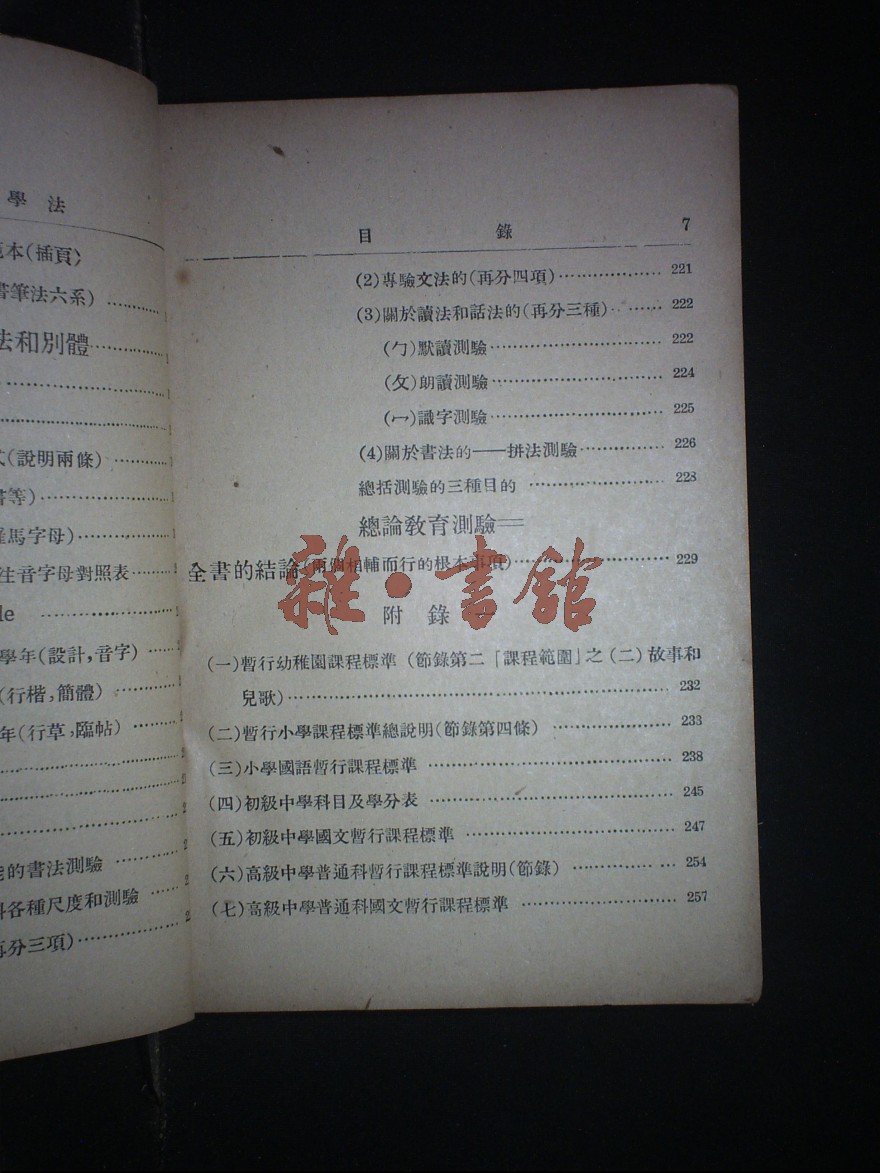 學法
本(插頁)
書筆法六系)
法和別體
(說明兩條)
書等)
羅馬字母)
注音字母對照表
學年(設計,音字)
(行楷,簡體)
年(行草,臨帖)
的書法測驗
各種尺度和測驗
再分三項)
目錄 7
(2)專驗文法的(再分四項) 221
(3)關於讀法和話法的(再分三種) 222
(ㄅ)默讀測驗 222
(ㄆ)朗讀測驗 224
(ㄇ)識字測驗 225
(4)關於書法的——拼法測驗 226
總括測驗的三種目的 228
總論教育測驗=
全書的結論(兩個相輔而行的根本事項) 229
雜·書館
附錄
(一)暫行幼稚園課程標準(節錄第二「課程範圍」之(二)故事和
兒歌) 232
(二)暫行小學課程標準總說明(節錄第四條) 233
(三)小學國語暫行課程標準 238
(四)初級中學科目及學分表 245
(五)初級中學國文暫行課程標準 247
(六)高級中學普通科暫行課程標準說明(節錄) 254
(七)高級中學普通科國文暫行課程標準 257